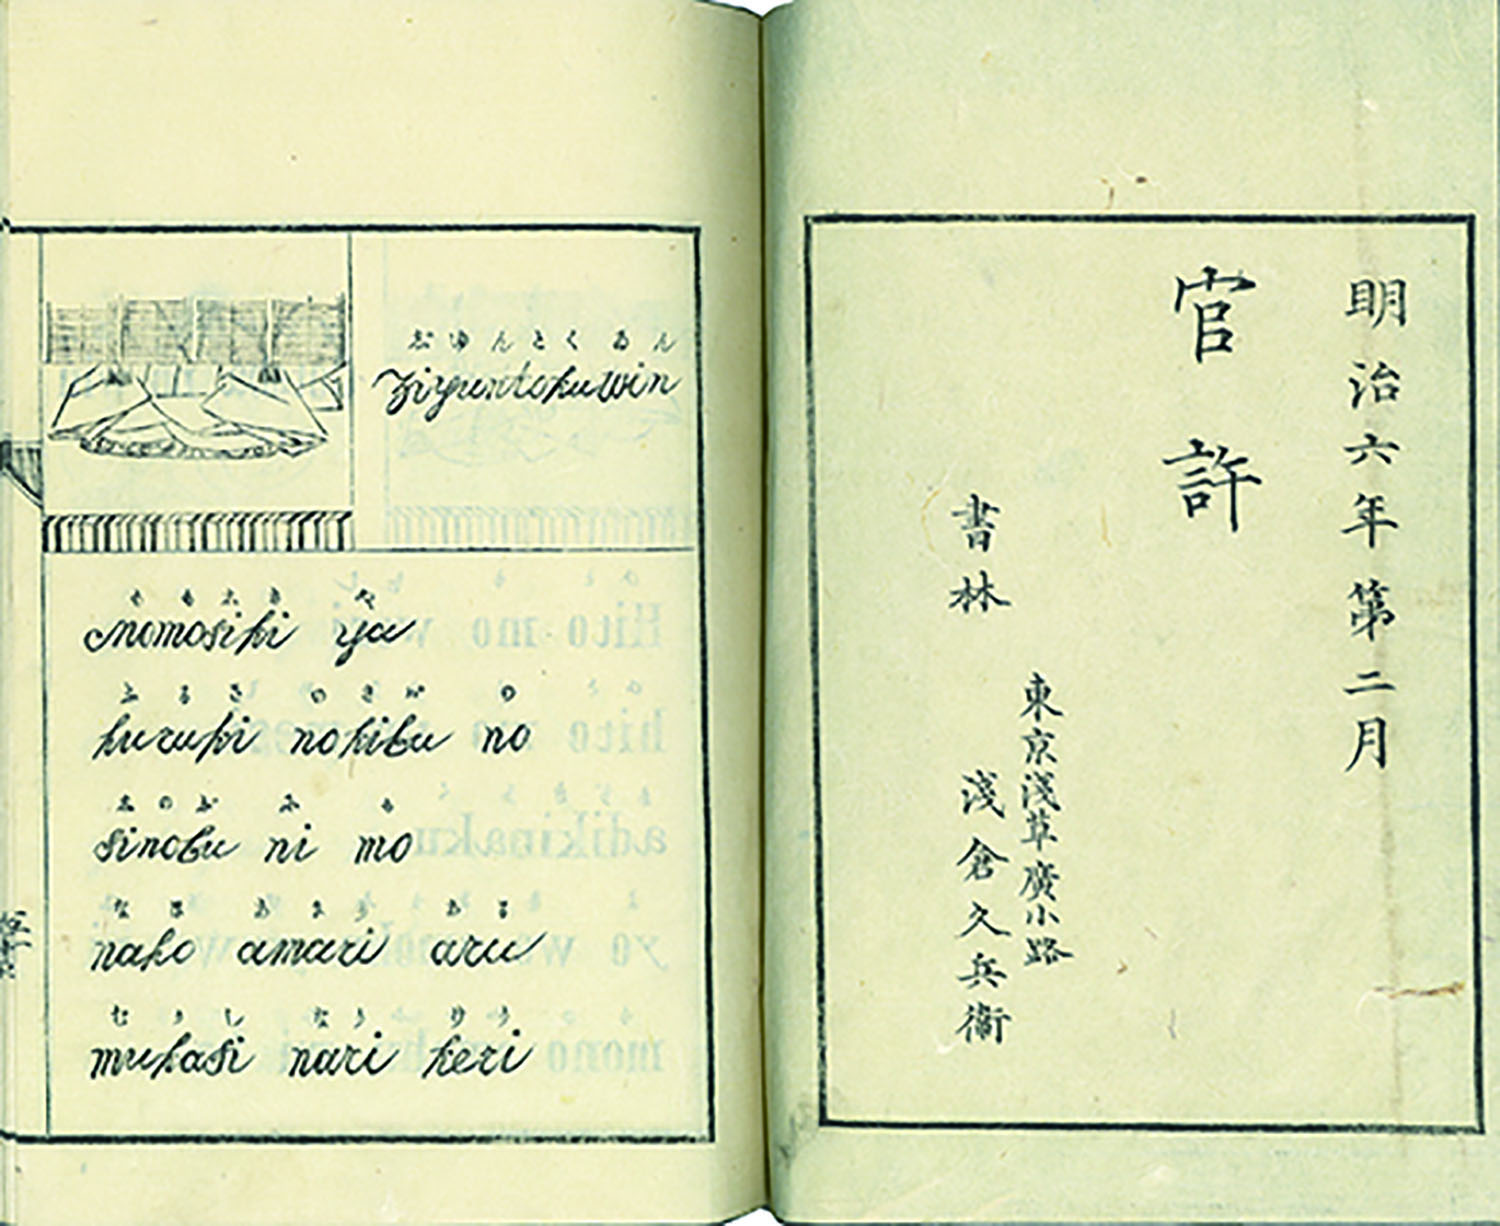 明治六年第二月
官許
東京淺草廣小路
書林 淺倉久兵衞
じゆんとくゐん
Ziyuntokuwin
もも志き や
Momosiki ya
ふるき のきば の
huruki nokiba no
志のぶ に も
sinobu ni mo
なほ あまり ある
naho amari aru
むかし なり けり
mukasi nari keri